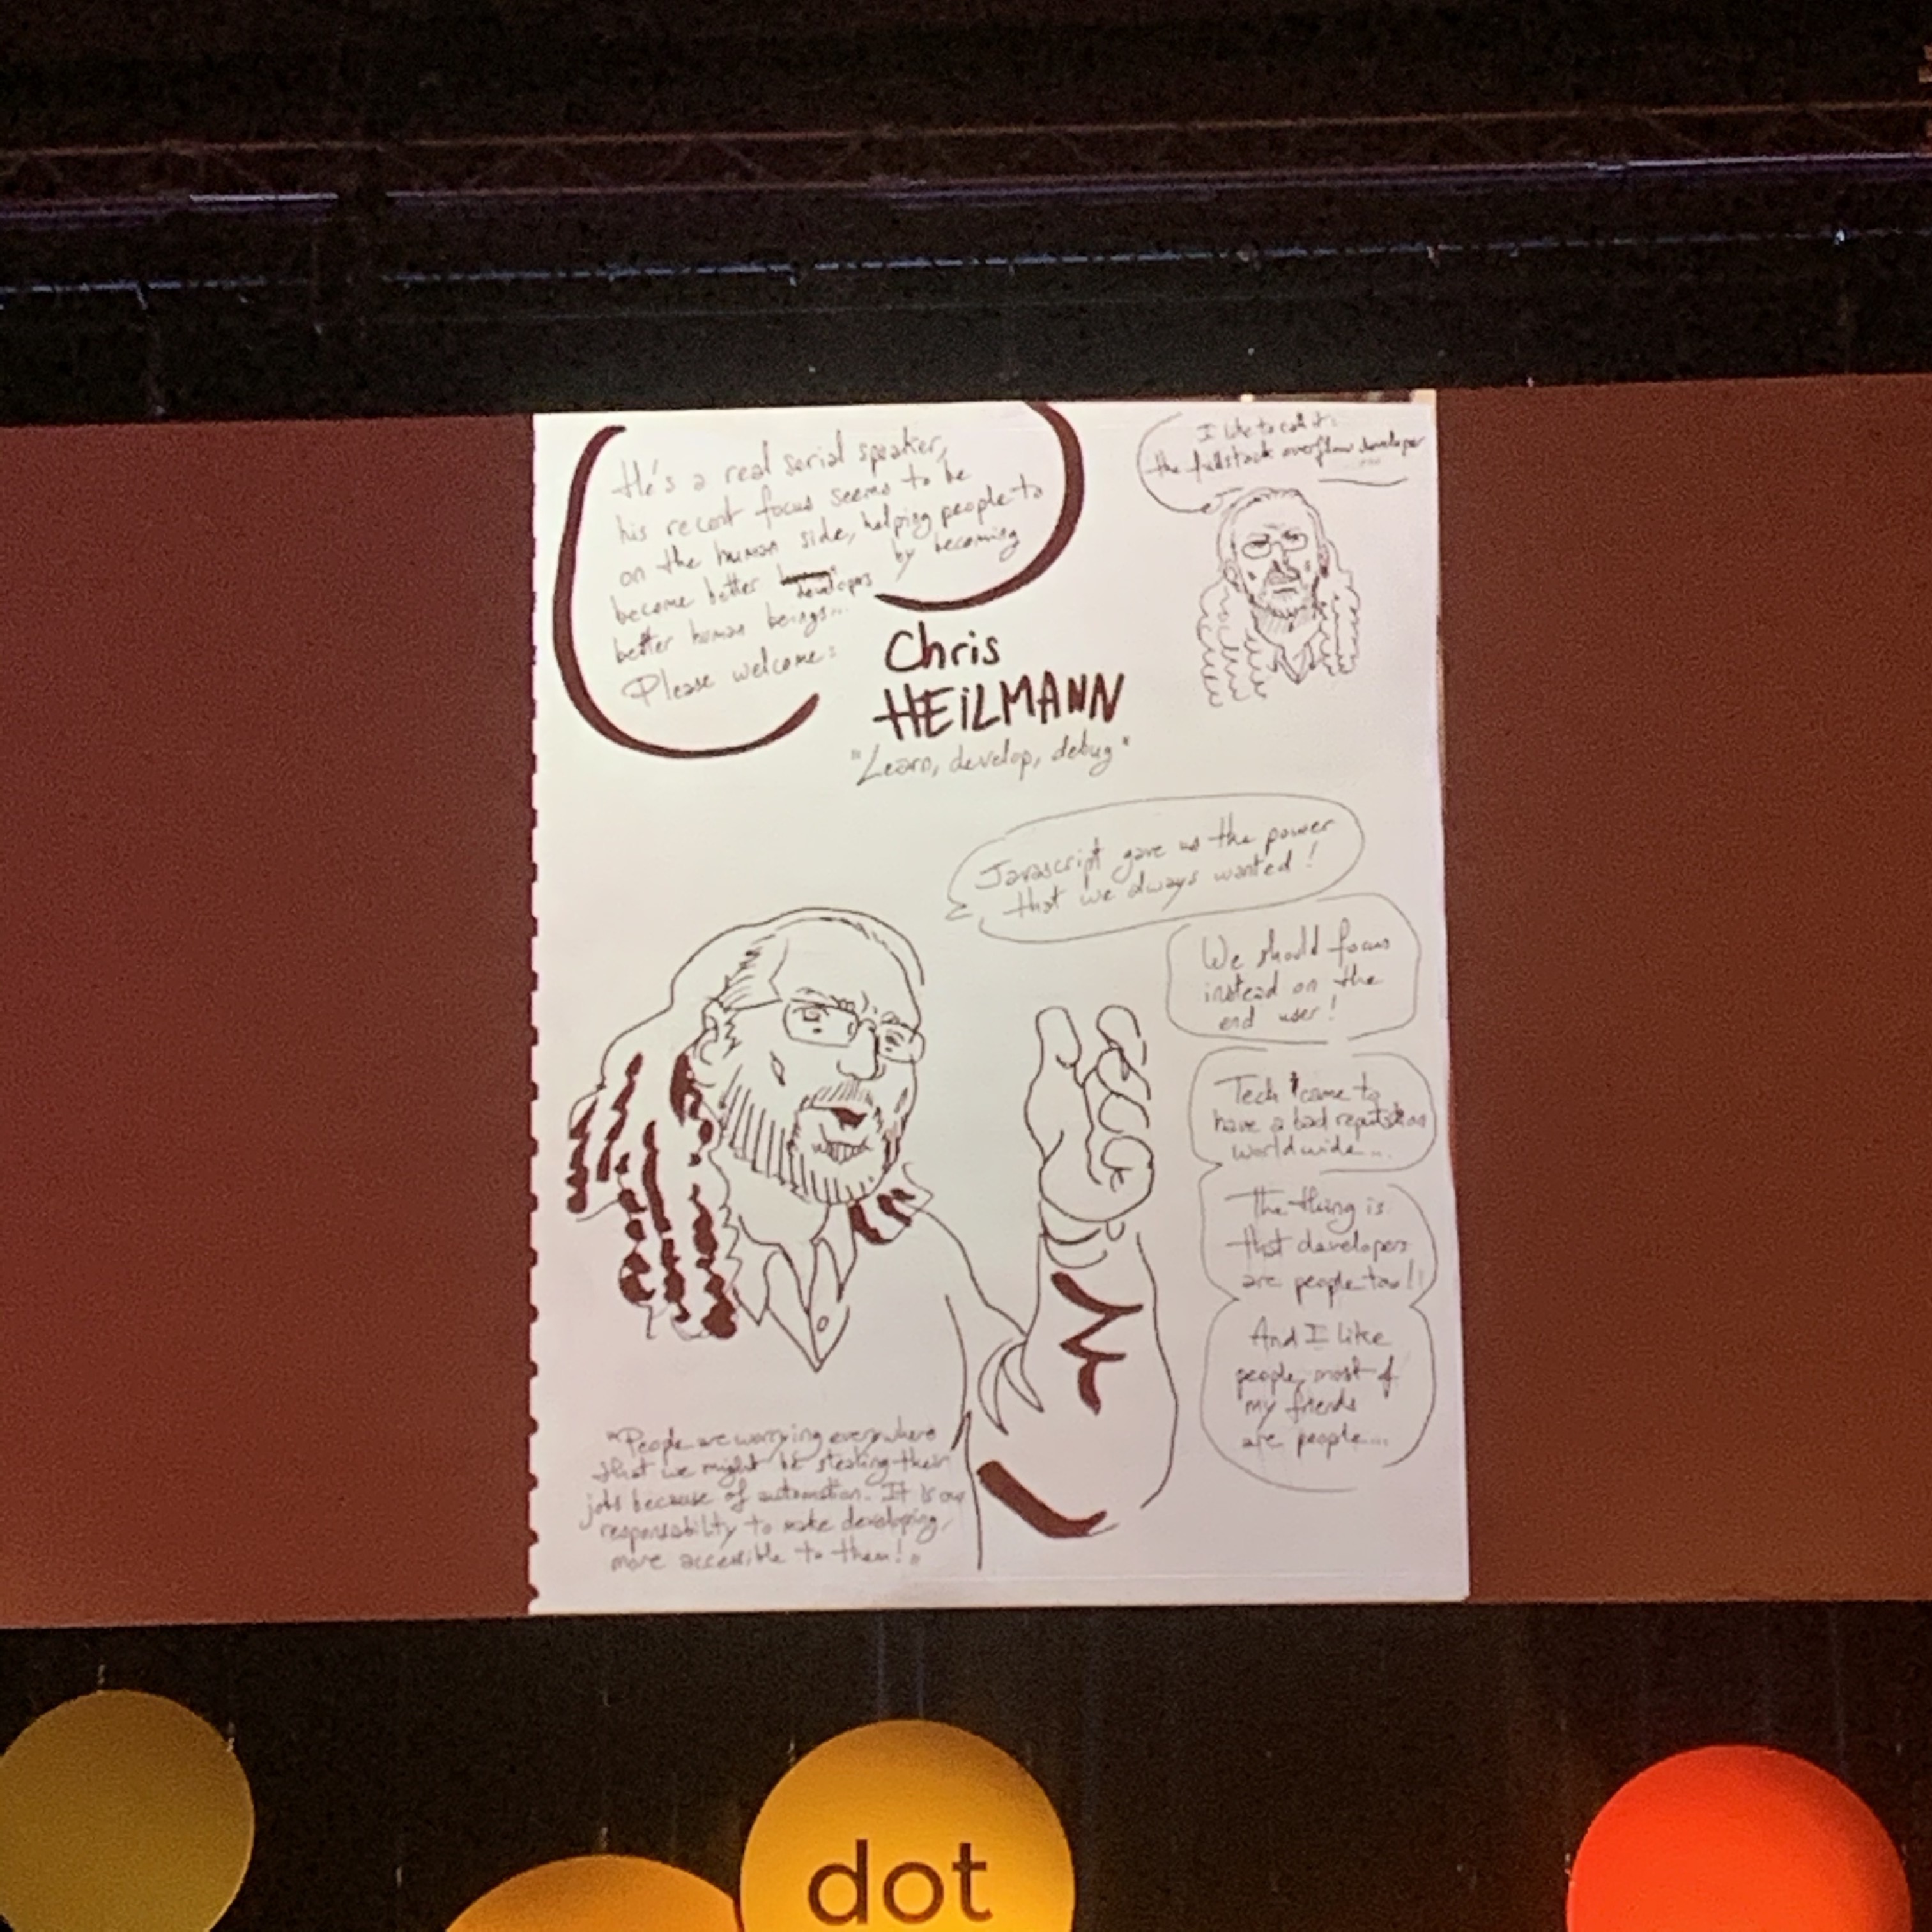 He's a real serial speaker,
his recent focus seems to be
on the human side, helping people to
become better developers by becoming
better human beings...
Please welcome:
Chris
HEILMANN
"Learn, develop, debug"
I like to call it:
the fullstack overflow developer
Javascript gave us the power
that we always wanted!
We should focus
instead on the
end user!
Tech came to
have a bad reputation
worldwide...
The thing is
that developers
are people too!!
And I like
people, most of
my friends
are people...
"People are worrying everywhere
that we might be stealing their
jobs because of automation. It is our
responsability to make developing,
more accessible to them!"
dot